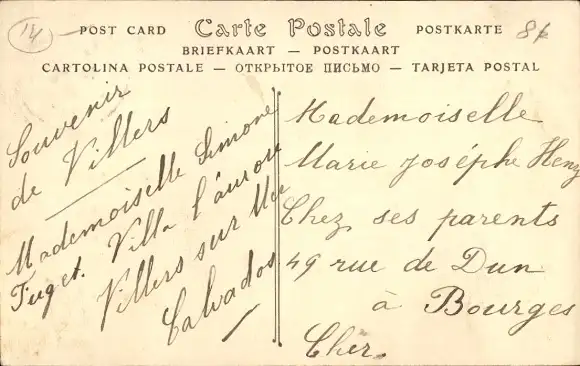 14
POST CARD Carte Postale POSTKARTE
BRIEFKAART — POSTKAART
CARTOLINA POSTALE — ОТКРЫТОЕ ПИСЬМО — TARJETA POSTAL
Souvenir
de Villers
Mademoiselle Simone
Puget. Villa l'aurore
Villers sur Mer
Calvados
Mademoiselle
Marie Joséphe Henz
Chez ses parents
49 rue de Dun
à Bourges
Cher.